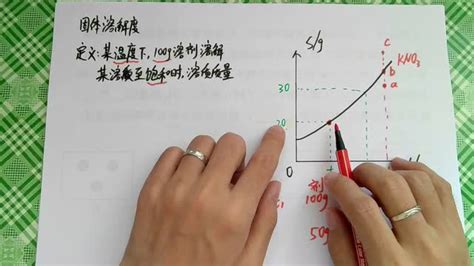 固体溶解度
定义:某温度下,100g溶剂溶解
某溶质至饱和时,溶质质量
S/g
c
KNO₃
b
a
30
20
0
t₁
100g
50g